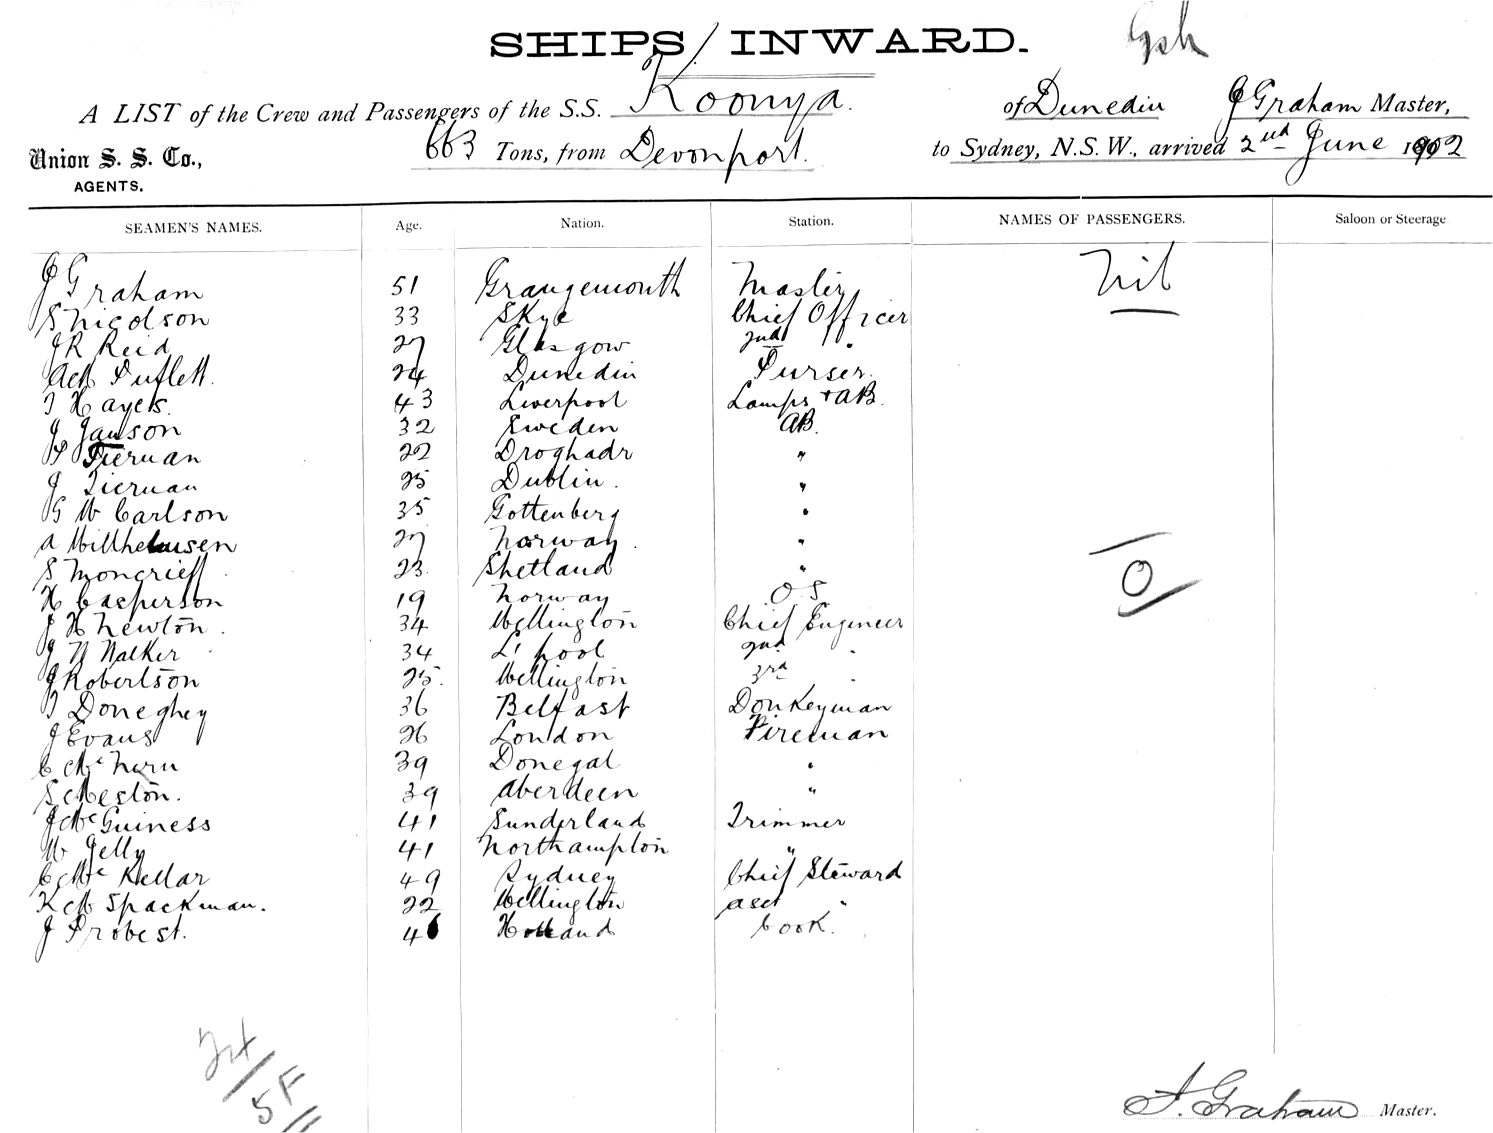 SHIPS INWARD.
A LIST of the Crew and Passengers of the S.S. Koonya. of Dunedin J Graham Master,
Union S. S. Co., 663 Tons, from Devonport. to Sydney, N.S.W., arrived 2nd June 1902
AGENTS.
SEAMEN'S NAMES. Age. Nation. Station. NAMES OF PASSENGERS. Saloon or Steerage
J Graham 51 Grangemouth Master Nil
S Nicolson 33 Skye Chief Officer
J R Reid 27 Glasgow 2nd "
24 Dunedin Purser.
T Hayes. 43 Liverpool Lamps + AB.
J Janson 32 Sweden AB.
P Tiernan 22 Droghadr "
J Tiernan 25 Dublin. "
G W Carlson 35 Gottenberg "
A Willhelmsen 27 Norway. "
S Moncrieff 23 Shetland "
H Casperson 19 Norway O S O
J H Newton. 34 Wellington Chief Engineer
J W Walker 34 L'pool 2nd "
J Robertson 25. Wellington 3rd "
T Doneghey 36 Belfast Donkeyman
J Evans 26 London Fireman
C McNern 39 Donegal "
S Meston. 39 Aberdeen "
J McGuiness 41 Sunderland Trimmer
W Jelly 41 Northampton "
C McKellar 49 Sydney Chief Steward
K M Spackman. 22 Wellington asst "
J Probest. 46 Holland Cook.
24
5F
J. Graham Master.